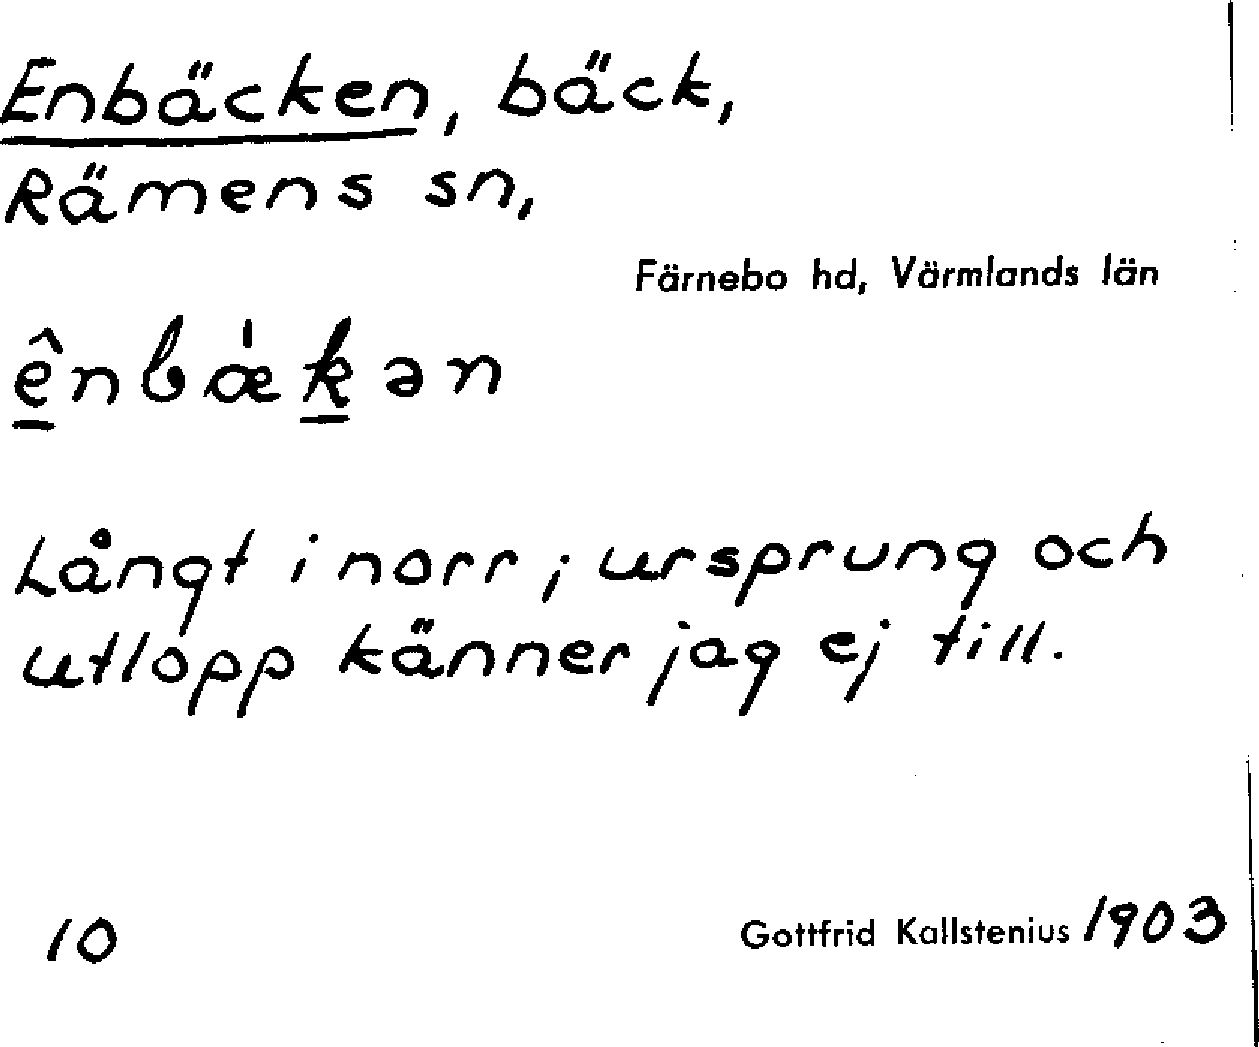 Enbäcken, bäck,
Rämens sn,
Färnebo hd, Värmlands län
ê̲nbæ̀k̲ən
Långt i norr; ursprung och
utlopp känner jag ej till.
10
Gottfrid Kallstenius 1903